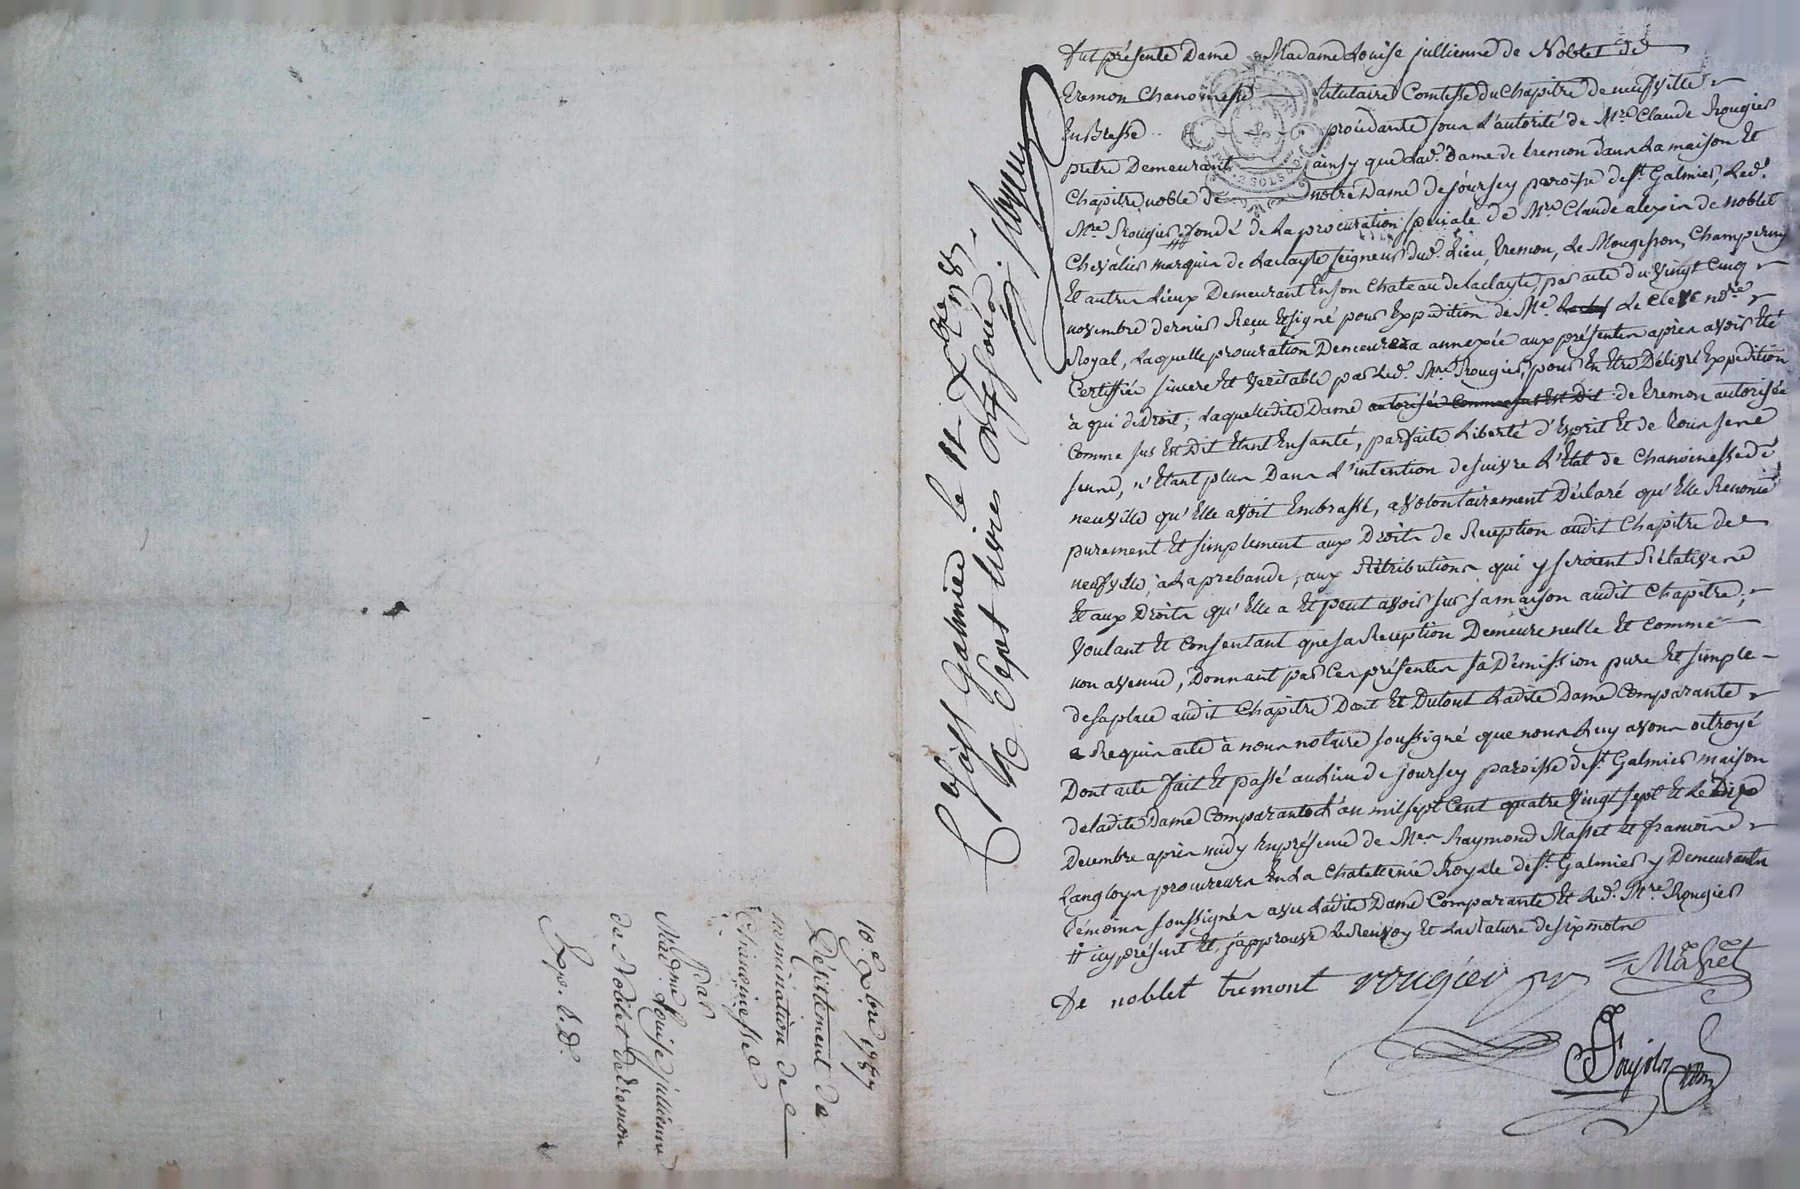 fut présente Dame Madame Louise jullienne de Noblet de
tremon Chanoinesse titulaire Comtesse du Chapitre de neufville
En Bresse procédante sous L'autorité de Mre Claude Rougier
prêtre Demeurant ainsy que lad. Dame de tremon dans La maison Et
Chapitre noble de notre Dame de joursey paroisse de St Galmier, Led.
Mre Rougier # fondé de La procuration spéciale de Mre Claude alexis de noblet
Chevalier marquis de Laclayte seigneur dud. Lieu, tremon,
Et autres Lieux Demeurant En son Chateau de Laclayte par acte du vingt cinq
novembre dernier Reçu Et signé pour Expédition de Me Le Clerc nore
Royal, Laquelle procuration Demeurera annexée aux présentes après avoir Eté
Certiffiée sincere Et veritable par Led. Mre Rougier, pour En Etre Délivré Expédition
à qui de Droit; Laquelle dite Dame autorisée Comme sus Est Dit de tremon autorisée
Comme sus Est Dit Etant En santé, parfaite Liberté d'Esprit Et de tous sens
sens, n'Etant plus Dans L'intention de suivre L'Etat de Chanoinesse de
neuville qu'Elle avoit Embrassé, a volontairement Déclaré qu'Elle Renonce
purement Et simplement aux Droits de Reception audit Chapitre de
neufville, a La prebande, aux Rétributions qui y seroient Rélatives
Et aux Droits qu'Elle a Et peut avoir sur sa maison audit Chapitre;
voulant Et Consentant que sa Reception Demeure nulle Et comme
non avenue, Donnant par Ces présentes sa Démission pure Et simple
de sa place audit Chapitre Dont Et Du tout Ladite Dame Comparante
a Requis acte à nous notaire soussigné que nous Luy avons octroyé
Dont acte fait Et passé au Lieu de joursey paroisse de St Galmier maison
de ladite Dame Comparante L'an mil sept Cent quatre vingt sept Et Le dix
Decembre après midy En présence de Mes Raymond Masset Et francois
Langloys procureurs En La Chatellenie Royale de St Galmier y Demeurants
témoins soussignés avec Ladite Dame Comparante Et Led. Mre Rougier
# icy présent Et j'approuve Le Renvoy Et La Rature de six mots
De noblet tremont rougier ptr Masset
nore
Galmier le 11 Xbre 1787
R sept livres dix sous
10e Xbre 1787
Désistement de
nomination de
Chanoinesse
Par
Madme Louise jullienne
de Noblet de tremon
Exp. s. D.
2 SOLS